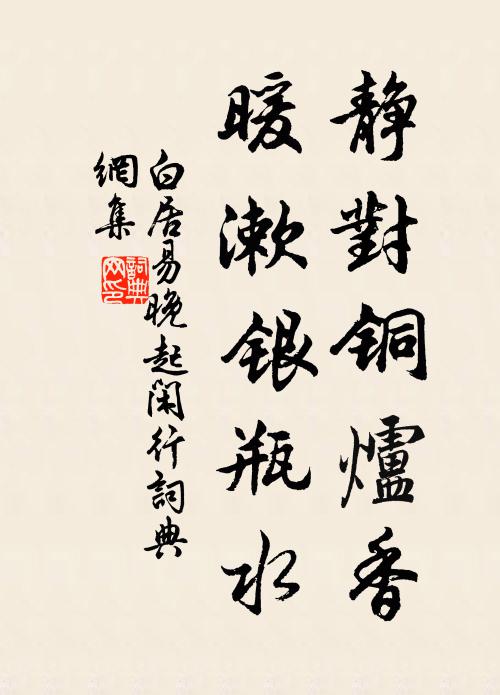 静對铜爐香
暖漱银瓶水
白居易晚起闲行詞典
網集
詞典
网印